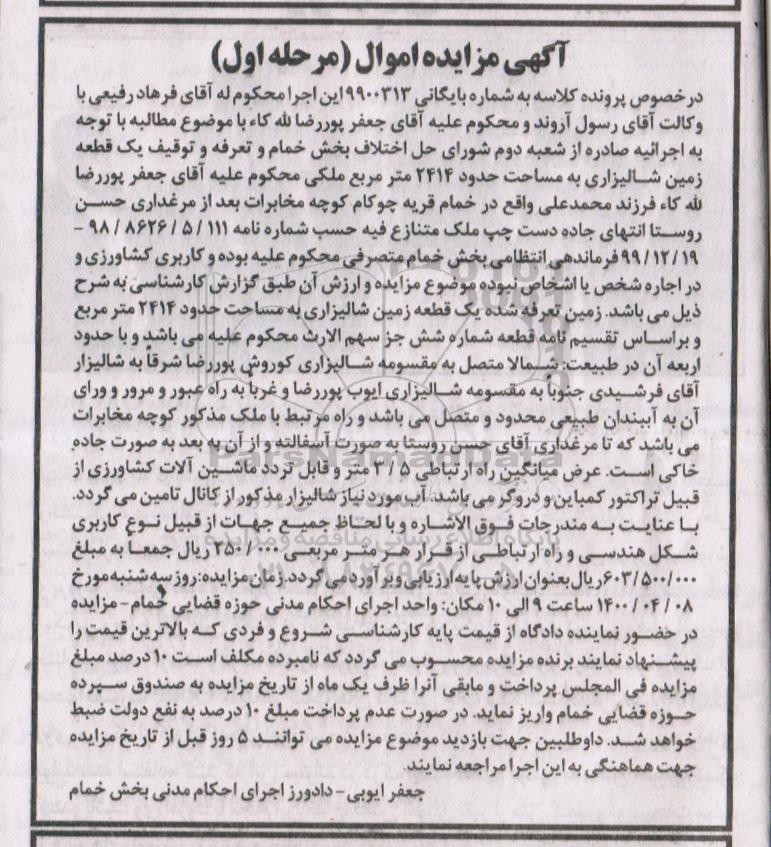 آگهی مزایده اموال (مرحله اول)
درخصوص پرونده کلاسه به شماره بایگانی ۹۹۰۰۳۱۳ این اجرا محکوم له آقای فرهاد رفیعی با
وکالت آقای رسول آروند و محکوم علیه آقای جعفر پوررضا لله کاء با موضوع مطالبه با توجه
به اجرائیه صادره از شعبه دوم شورای حل اختلاف بخش خمام و تعرفه و توقیف یک قطعه
زمین شالیزاری به مساحت حدود ۲۴۱۴ متر مربع ملکی محکوم علیه آقای جعفر پوررضا
لله کاء فرزند محمدعلی واقع در خمام قریه چوکام کوچه مخابرات بعد از مرغداری حسن
روستا انتهای جاده دست چپ ملک متنازع فیه حسب شماره نامه ۱۱۱ / ۵ / ۸۶۲۶ / ۹۸ -
۹۹/۱۲/۱۹ فرماندهی انتظامی بخش خمام متصرفی محکوم علیه بوده و کاربری کشاورزی و
در اجاره شخص یا اشخاص نبوده موضوع مزایده و ارزش آن طبق گزارش کارشناسی به شرح
ذیل می باشد. زمین تعرفه شده یک قطعه زمین شالیزاری به مساحت حدود ۲۴۱۴ متر مربع
و براساس تقسیم نامه قطعه شماره شش جز سهم الارث محکوم علیه می باشد و با حدود
اربعه آن در طبیعت: شمالا متصل به مقسومه شالیزاری کوروش پوررضا شرقاً به شالیزار
آقای فرشیدی جنوباً به مقسومه شالیزاری ایوب پوررضا و غرباً به راه عبور و مرور و ورای
آن به آببندان طبیعی محدود و متصل می باشد و راه مرتبط با ملک مذکور کوچه مخابرات
می باشد که تا مرغداری آقای حسن روستا به صورت آسفالته و از آن به بعد به صورت جاده
خاکی است. عرض میانگین راه ارتباطی ۳/۵ متر و قابل تردد ماشین آلات کشاورزی از
قبیل تراکتور کمباین و دروگر می باشد. آب مورد نیاز شالیزار مذکور از کانال تامین می گردد.
با عنایت به مندرجات فوق الاشاره و با لحاظ جمیع جهات از قبیل نوع کاربری
شکل هندسی و راه ارتباطی از قرار هر متر مربعی ۲۵۰/۰۰۰ ریال جمعاً به مبلغ
۶۰۳/۵۰۰/۰۰۰ ریال بعنوان ارزش پایه ارزیابی و برآورد می گردد. زمان مزایده: روز سه شنبه مورخ
۱۴۰۰/۰۴/۰۸ ساعت ۹ الی ۱۰ مکان: واحد اجرای احکام مدنی حوزه قضایی خمام - مزایده
در حضور نماینده دادگاه از قیمت پایه کارشناسی شروع و فردی که بالاترین قیمت را
پیشنهاد نمایند برنده مزایده محسوب می گردد که نامبرده مکلف است ۱۰ درصد مبلغ
مزایده فی المجلس پرداخت و مابقی آنرا ظرف یک ماه از تاریخ مزایده به صندوق سپرده
حوزه قضایی خمام واریز نماید. در صورت عدم پرداخت مبلغ ۱۰ درصد به نفع دولت ضبط
خواهد شد. داوطلبین جهت بازدید موضوع مزایده می توانند ۵ روز قبل از تاریخ مزایده
جهت هماهنگی به این اجرا مراجعه نمایند.
جعفر ایوبی - دادورز اجرای احکام مدنی بخش خمام
ParsNamadData
پایگاه اطلاع رسانی مناقصه و مزایده